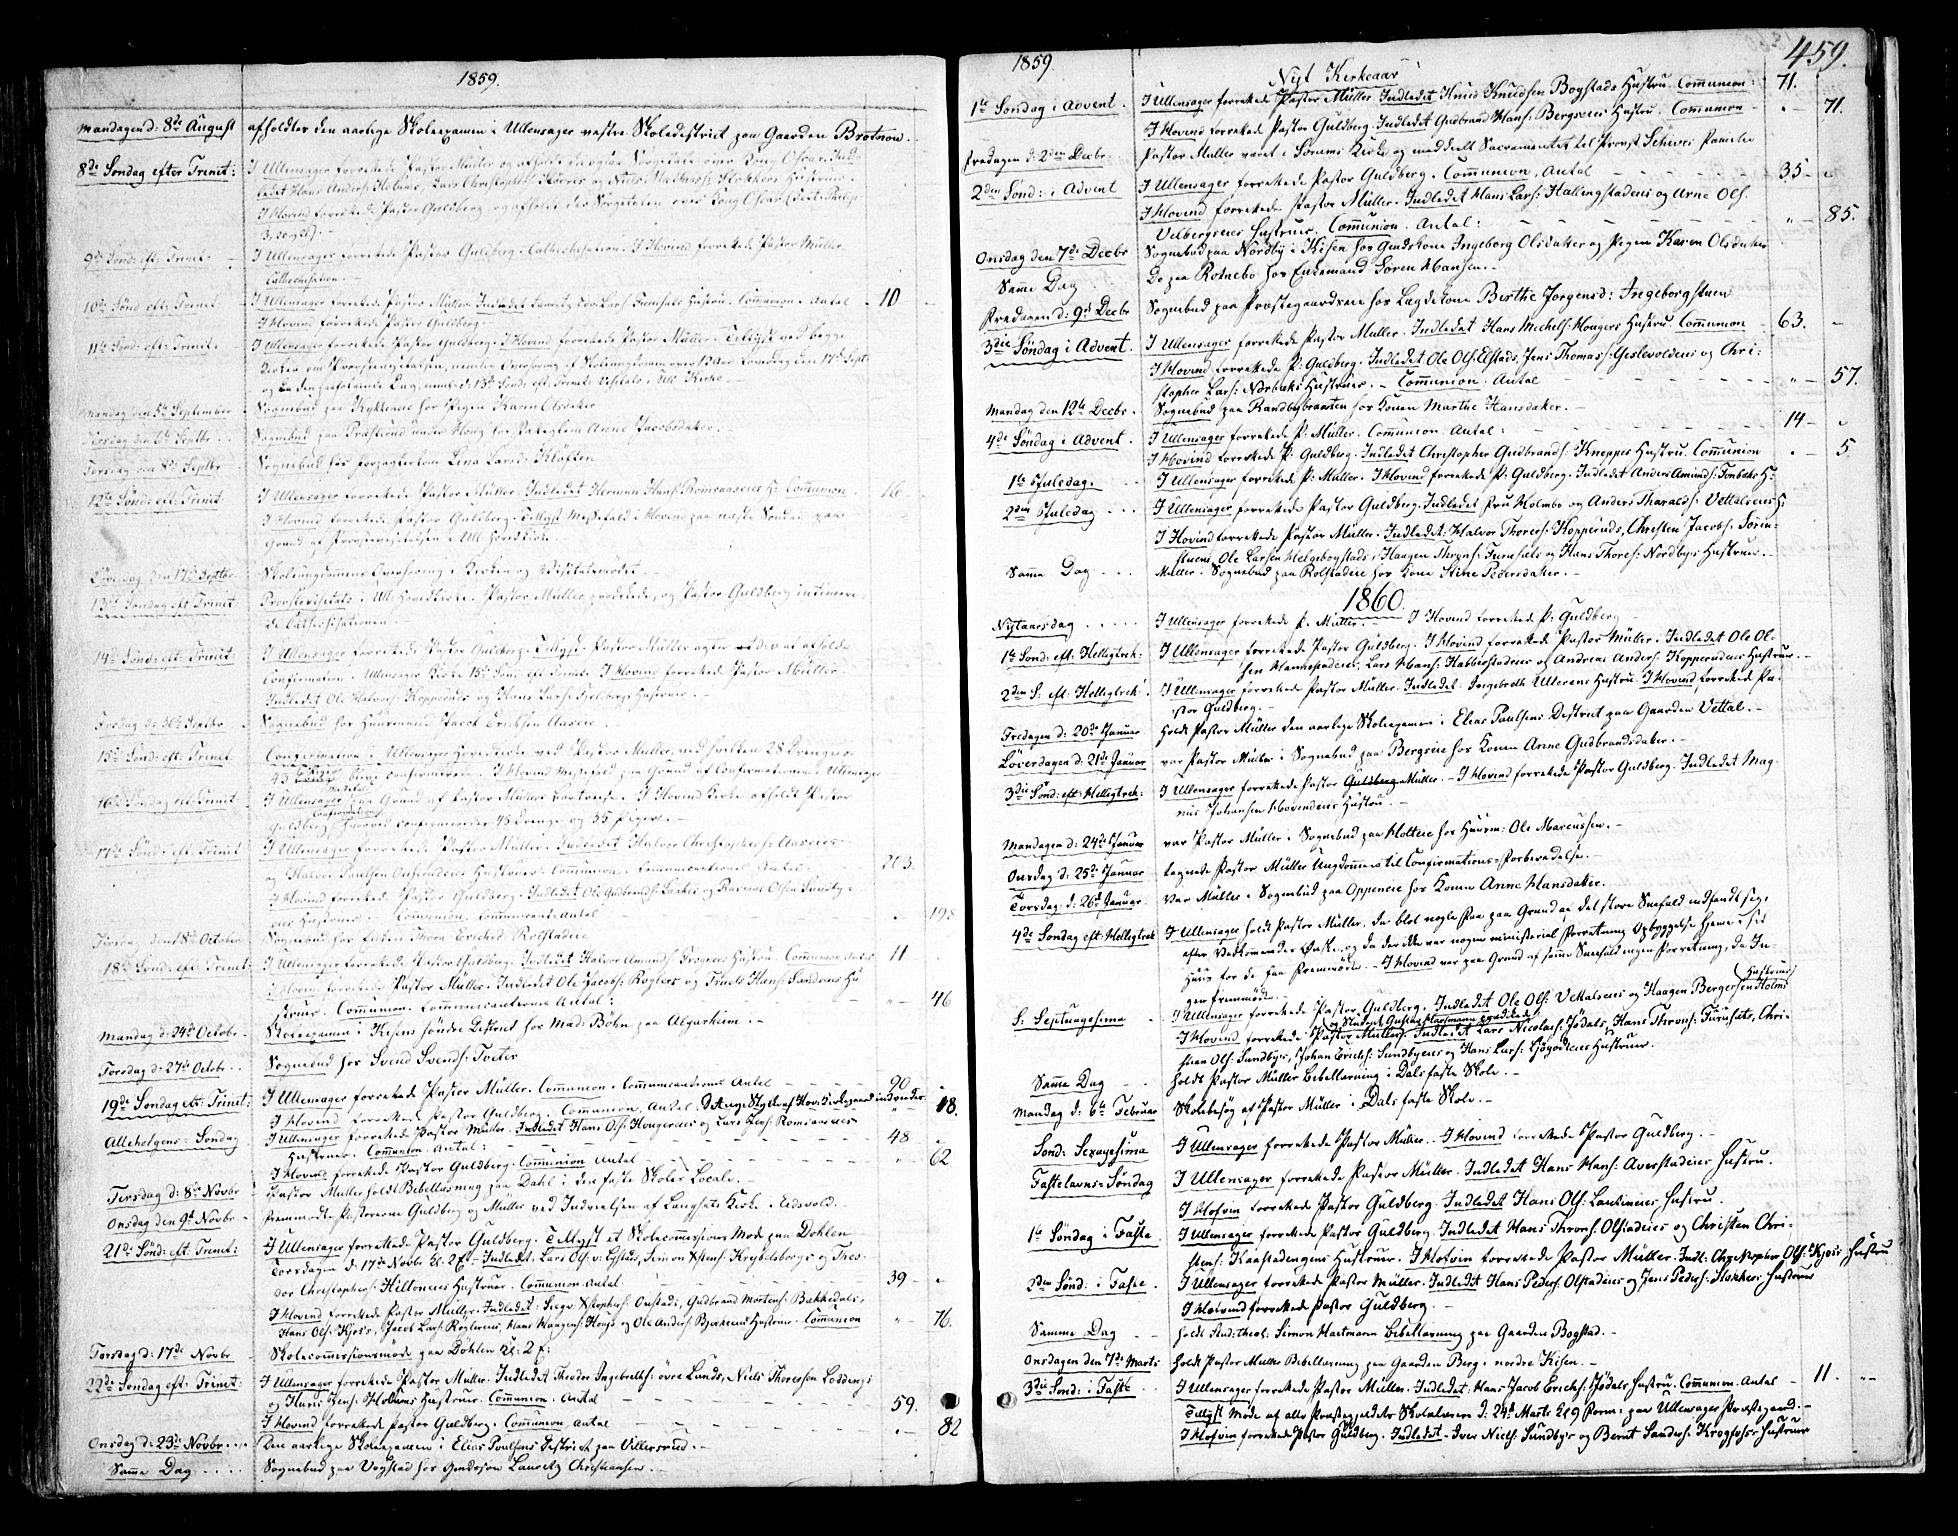 1859.
Mandagen d: 8de August afholdtes den aarlige Skoleexamen i Ullensager vestre Skoledistrict paa Gaarden Brotnow.
8de Søndag efter Trinit: I Ullensager forrettede Pastor Müller og afholdt
I Hovind forrettede Pastor Guldberg og afholdt
9de Sønd: eft: Trinit. I Ullensager forrettede Pastor Guldberg. Cathechisation. I Hovind forrettede Pastor Müller.
Cathechisation.
10de Sønd: eft: Trinit I Ullensager forrettede Pastor Müller. Indledet Hustru. Communion. Antal 10
I Hovind forrettede Pastor Guldberg.
11te Sønd: eft: Trinit. I Ullensager forrettede Pastor Guldberg. I Hovind forrettede Pastor Müller. Tillyst ved begge
Mandag den 5te September Sognebud paa hos Pigen Karen Olsdatter
Tirsdag den 6te Septbr. Sognebud paa Præsterud under Haug for Anne Jacobsdatter.
Torsdag den 8de Septbr Sognebud hos Lina Larsd: Kløften
12te Sønd: eft: Trinit I Ullensager forrettede Pastor Müller. Indledet Herman Hans: H: Communion 16
I Hovind forrettede Pastor Guldberg. Tillyst Messefald i Hovind paa næste Søndag paa
Grund af Provstevisitatsen i Ull: Hovedkirke.
Løverdag den 17de Septbr. Skoleungdommens Overhøring i Kirken og Visitatsmødet.
13de Søndag eft: Trinit Provstevisitats i Ull: Hovedkirke. Pastor Müller prædikede, og Pastor Guldberg
Cathechisationen.
14de Sønd: eft: Trinit: I Ullensager forrettede Pastor Guldberg. Tillyst: Pastor Müller agter at afholde
Confirmation i Ullensager Kirke 15de Sønd: eft: Trinit. I Hovind forrettede Pastor Müller.
Indledet Ole Halvors: Kopperuds og Hans Lars: Hustruer.
Sognebud hos Huusmand Jacob Erichsen Aaseie.
15de Sønd: eft: Trinit. Confirmation i Ullensager Hovedkirke ved Pastor Müller, ved hvilken 28 Drenge og
43 Piger bleve confirmerede. I Hovind Messefald paa Grund af Confirmationen i Ullensager
16de Søndag eft: Trinit I Ullensager Messefald paa Grund af Pastor Müllers. I Hovind Kirke afholdt Pastor
Guldberg Confirmation, hvorved confirmeredes 45 Drenge og 35 Piger.
17de Sønd: eft: Trinit I Ullensager forrettede Pastor Müller. Indledet Halvor Christophers: Aaseies
og Halvor Paulsen Hustruer. Communion. Communicanternes Antal. 203.
I Hovind forrettede Pastor Guldberg. Indledet Ole Gudbrands: og Rasmus Olsen Sundby-
eies Hustruer. Communion. Communicant: Antal 198
Tirsdag den 18de October Sognebud hos Erichsd: Rolstadeie
18de Sønd: eft: Trinit: I Ullensager forrettede Pastor Guldberg. Indledet Halvor Amunds: Hustru. Communion. Antal 11
I Hovind forrettede Pastor Müller. Indledet Ole Jacobs: Røglers og Truels Hans: Hu
struer. Communion. Communicanternes Antal: 46
Mandag d: 24de Octobr. Skoleexamen i Kisens søndre District hos Mad: Böhn paa Algarheim.
Torsdag d: 27de Octobr. Sognebud hos Svend Svends: Tveter
19de Søndag eft: Trinit: I Ullensager forrettede Pastor Müller. Communion. Communicanternes Antal 90
I Hovind forrettede Pastor Guldberg. Communion. Antal. 18.
Allehelgens-Søndag I Ullensager forrettede Pastor Müller. Indledet Hans Ols: Haugereies og Lars Jens: Romsaaseies
Hustruer. Communion. Antal: 48
I Hovind forrettede Pastor Guldberg. Communion. Antal 62
Tirsdag d: 8de Novbr Pastor Müller holdt Bibellæsning paa Dahl i den faste Skoles Locale.
Onsdag den 9de Novbr. fremmødte Pastorerne Guldberg og Müller ved Indvielsen af Langsets Kirke i Eidsvold.
21de Sønd: eft: Trinit: I Ullensager forrettede Pastor Guldberg. Tillyst et Skolecommissions Møde paa Döhlen
Torsdagen d: 17de Novbr Kl: 2 Ef. Indledet: Lars Ols: Simon Jens: Krybelsbergs og Theo-
dor Christophers: Hiltoneies Hustruer. Communion. Antal 39
I Hovind forrettede Pastor Müller. Indledet: Onstads, Gudbrand Mortens: Bakkedals,
Hans Ols: Kjos's, Jacob Lars: Røglereies, Hans Haagens: Haugs og Ole Anders: Bjerkeeies Hustruer. Communion 76.
Torsdag d: 17de Novbr Skolecommissionsmøde paa Döhlen Kl: 2 E:
22de Søndag eft: Trinit: I Ullensager forrettede Pastor Müller. Indledet Theodor Ingebreths: øvre Lunds, Niels Thoresen Loddengs
og Hans Jens: Holums Hustruer. Communion. Antal 59.
I Hovind forrettede Pastor Guldberg. Communion. Antal 82
Onsdag d: 23de Novbr. Den aarlige Skoleexamen i Elias Poulsens District paa Villersrud.
Samme Dag Sognebud paa Vogstad hos Gmdssøn Lauritz Christiansen.
459.
1859. Nyt Kirkeaar
1te Søndag i Advent. I Ullensager forrettede Pastor Müller. Indledet Knud Knudsen Bogstads Hustru. Communion: 71.
I Hovind forrettede Pastor Guldberg. Indledet Gudbrand Hans: Bergseies Hustru. Communion 71.
Fredagen d: 2den Decbr. Pastor Müller været i Sørums Kirke og meddeelt Sacramentet til Provst Schives Familie
2den Sønd: i Advent I Ullensager forrettede Pastor Guldberg. Communion, Antal 35
I Hovind forrettede Pastor Müller. Indledet Hans Lars: Hallingstadeies og Arne Ols.
Velbergseies Hustruer. Communion. Antal: 85.
Onsdag den 7de Decbr Sognebud paa Nordby i Kisen hos Gmdskone Ingeborg Olsdatter og Pigen Karen Olsdatter
Samme Dag Do paa Rotnebo hos Enkemand Søren Hansen.
Fredagen d: 9de Decbr Sognebud paa Præstegaardseie hos Lægdekone Berthe Jørgensd: Ingeborgstuen
3die Søndag i Advent. I Ullensager forrettede Pastor Müller. Indledet Hans Michels: Haugers Hustru. Communion 63.
I Hovind forrettede P: Guldberg. Indledet Ole Ols: Elstads, Jens Thomas: Gislevoldeies og Chri-
stopher Lars: Nordbeks Hustruer. Communion. Antal 57.
Mandag den 12te Decbr. Sognebud paa Randbybraaten hos Konen Marthe Hansdatter.
4de Søndag i Advent. I Ullensager forrettede P: Müller. Communion. Antal: 14
I Hovind forrettede P: Guldberg. Indledet Christopher Gudbrands: Kneppes Hustru. Communion 5.
1te Juledag. I Ullensager forrettede P: Müller. I Hovind forrettede P: Guldberg. Indledet Anders Amunds: Fonbeks H:
2den Juledag I Ullensager forrettede Pastor Guldberg. Indledet Fru Holmboe og Anders Tharalds: Vettalseies H:
I Hovind forrettede Pastor Müller. Indledet: Halvor Thores: Kopperuds, Christen Jacobs: Sørin-
stuens, Ole Larsen Helgebogstads, Haagen Thrøns: Furusets og Hans Thores: Nordbys Hustruer.
Samme Dag Müller. Sognebud paa Rolstadeie hos Kone Stine Pedersdatter.
1860.
Nytaarsdag I Ullensager forrettede P. Müller. I Hovind forrettede P: Guldberg
1te Sønd: eft: Helligtrek: I Ullensager forrettede Pastor Guldberg. I Hovind forrettede Pastor Müller. Indledet Ole Ol-
sen Hannestadeies, Lars Hans: Habberstadeies og Andreas Anders: Kopperudeies Hustruer.
2den S. eft: Helligtrek: I Ullensager forrettede Pastor Müller. Indledet Ingebreth Ulterens Hustru. I Hovind forrettede Pa-
stor Guldberg.
Fredagen d: 20de Januar Holdt Pastor Müller den aarlige Skoleexamen i Elias Paulsens District paa Gaarden Vettal.
Løverdagen d: 21de Januar var Pastor Müller i Sognebud paa Bergseie hos Konen Anne Gudbrandsdatter.
3die Sønd: eft: Helligtrek: I Ullensager forrettede Pastor Guldberg Müller. I Hovind forrettede Pastor Guldberg. Indledet Mag-
nus Johansen Hovindeies Hustru.
Mandagen d: 24de Januar var Pastor Müller i Sognebud paa Holteie hos Huusm: Ole Marcussen.
Onsdag d: 25de Januar tegnede Pastor Müller Ungdommen til Confirmations-Forberedelse.
Torsdag d: 26de Januar Var Müller i Sognebud paa Oppeneie hos Konen Anne Hansdatter.
4de Søndag eft: Helligtrek I Ullensager holdt Pastor Müller, da blot nogle Faa paa Grund af det store Sneefald indfandt sig,
efter Vedkommendes Ønske, og da der ikke var nogen ministeriel Forretning Opbyggelse hjemme i sit
Huus for de faa Fremmødte. I Hovind var paa Grund af samme Sneefald ingen Forretning, da In-
gen fremmødte.
S: Septuagesima I Ullensager forrettede Pastor Guldberg. Indledet Ole Ols: Vettalseies og Haagen Bergersen Holms Hustruer
I Hovind forrettede Pastor Müller og Student Gustav Hartmann prædikede. Indledet Lars Nicolais: Jødals, Hans Thrøns: Furusets, Chri-
stian Ols: Sundbyes, Johan Erichs: Sundbyeies og Hans Lars: Ljøgodteies Hustruer.
Samme Dag holdt Pastor Müller Bibellæsning i Dals faste Skole.
Mandag d: 6te Februar Skolebesøg af Pastor Müller i Dals faste Skole.
Sønd: Sexagesima I Ullensager forrettede Pastor Müller. I Hovind forrettede Pastor Guldberg.
Fastelavns-Søndag I Ullensager forrettede Pastor Müller. Indledet Hans Hans: Averstadeies Hustru.
I Hofvin forrettede Pastor Guldberg. Indledet Hans Ols: Hustru.
1te Søndag i Faste. I Ullensager forrettede Pastor Guldberg. Indledet Hans Throns: Olstadeies og Christen Chri-
stens: Kaastadengens Hustruer. I Hofvin forrettede Pastor Müller. Indl: Christopher Ols: Kjos's Hustru
2den Sønd: i Faste. I Ullensager forrettede Pastor Müller. Indledet Hans Peders: Olstadeies og Jens Peders: Slokkers Hustruer
I Hovind forrettede Pastor Guldberg.
Samme Dag holdt Stud: theol: Simon Hartmann Bibellæsning paa Gaarden Bogstad.
Onsdagen den 7de Marts holdt Pastor Müller Bibellæsning paa Gaarden Berg i nordre Kisen.
3die Sønd: i Faste I Ullensager forrettede Pastor Müller. Indledet: Hans Jacob Erichs: Jødals Hustru. Communion. Antal 11.
Tillyst Møde af alle Præstegjeldets Skolelærere d: 24de Marts Kl 9 Form: paa Ullensager Præstegaard.
I Hofvin forrettede Pastor Guldberg. Indledet Iver Niels: Sundbys og Bernt Sanders: Krogfoss Hustruer